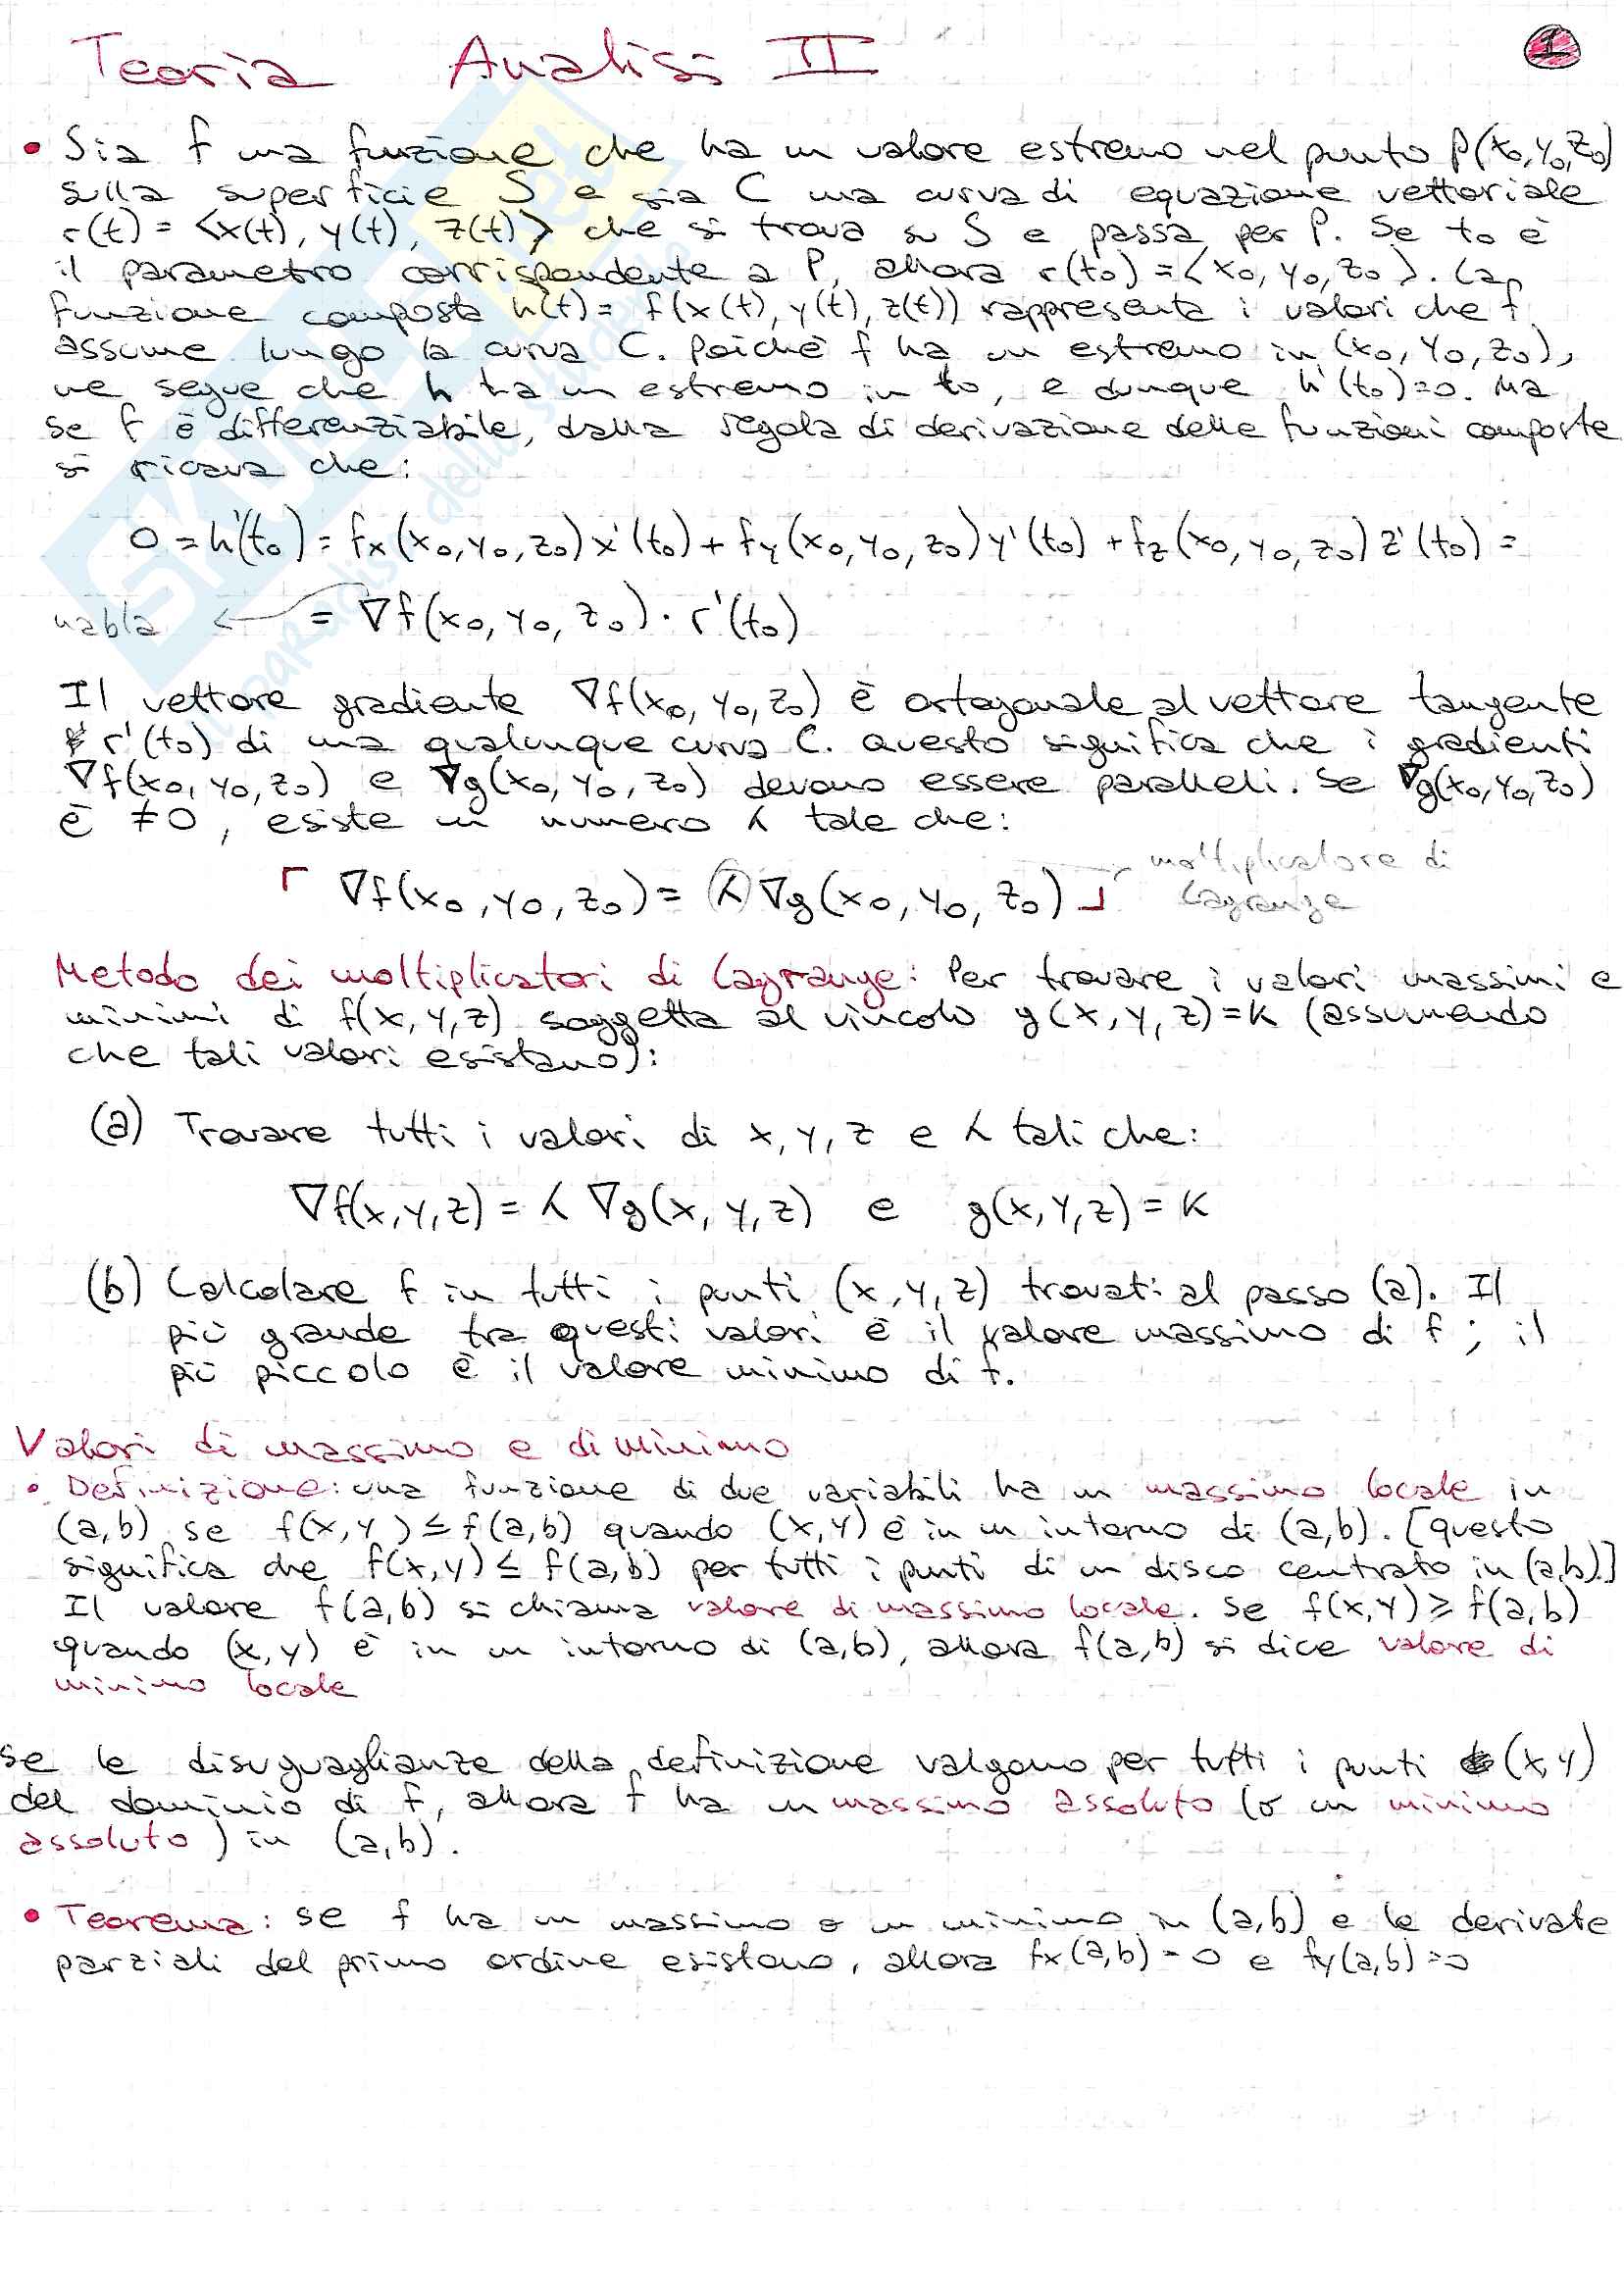 Teoria Analisi II
1
• Sia f una funzione che ha un valore estremo nel punto P(x₀,y₀,z₀)
sulla superficie S e sia C una curva di equazione vettoriale
r(t) = ⟨x(t), y(t), z(t)⟩ che si trova su S e passa per P. Se t₀ è
il parametro corrispondente a P, allora r(t₀) = ⟨x₀, y₀, z₀⟩. La
funzione composta h(t) = f(x(t), y(t), z(t)) rappresenta i valori che f
assume lungo la curva C. Poiché f ha un estremo in (x₀, y₀, z₀),
ne segue che h ha un estremo in t₀, e dunque h'(t₀)=0. Ma
se f è differenziabile, dalla regola di derivazione delle funzioni composte
si ricava che:
0 = h'(t₀) = fx(x₀,y₀,z₀)x'(t₀) + fy(x₀,y₀,z₀)y'(t₀) + fz(x₀,y₀,z₀)z'(t₀) =
nabla ← = ∇f(x₀, y₀, z₀) · r'(t₀)
Il vettore gradiente ∇f(x₀, y₀, z₀) è ortogonale al vettore tangente
r'(t₀) di una qualunque curva C. Questo significa che i gradienti
∇f(x₀, y₀, z₀) e ∇g(x₀, y₀, z₀) devono essere paralleli. Se ∇g(x₀,y₀,z₀)
è ≠0, esiste un numero λ tale che:
∇f(x₀, y₀, z₀) = λ ∇g(x₀, y₀, z₀) moltiplicatore di
Lagrange
Metodo dei moltiplicatori di Lagrange: Per trovare i valori massimi e
minimi di f(x, y, z) soggetta al vincolo g(x, y, z)=K (assumendo
che tali valori esistano):
(a) Trovare tutti i valori di x, y, z e λ tali che:
∇f(x, y, z) = λ ∇g(x, y, z) e g(x, y, z) = K
(b) Calcolare f in tutti i punti (x, y, z) trovati al passo (a). Il
più grande tra questi valori è il valore massimo di f; il
più piccolo è il valore minimo di f.
Valori di massimo e di minimo
• Definizione: una funzione di due variabili ha un massimo locale in
(a,b) se f(x,y) ≤ f(a,b) quando (x,y) è in un intorno di (a,b). [questo
significa che f(x,y) ≤ f(a,b) per tutti i punti di un disco centrato in (a,b).]
Il valore f(a,b) si chiama valore di massimo locale. Se f(x,y) ≥ f(a,b)
quando (x,y) è in un intorno di (a,b), allora f(a,b) si dice valore di
minimo locale
Se le disuguaglianze della definizione valgono per tutti i punti (x,y)
del dominio di f, allora f ha un massimo assoluto (o un minimo
assoluto) in (a,b).
• Teorema: se f ha un massimo o un minimo in (a,b) e le derivate
parziali del primo ordine esistono, allora fx(a,b)=0 e fy(a,b)=0